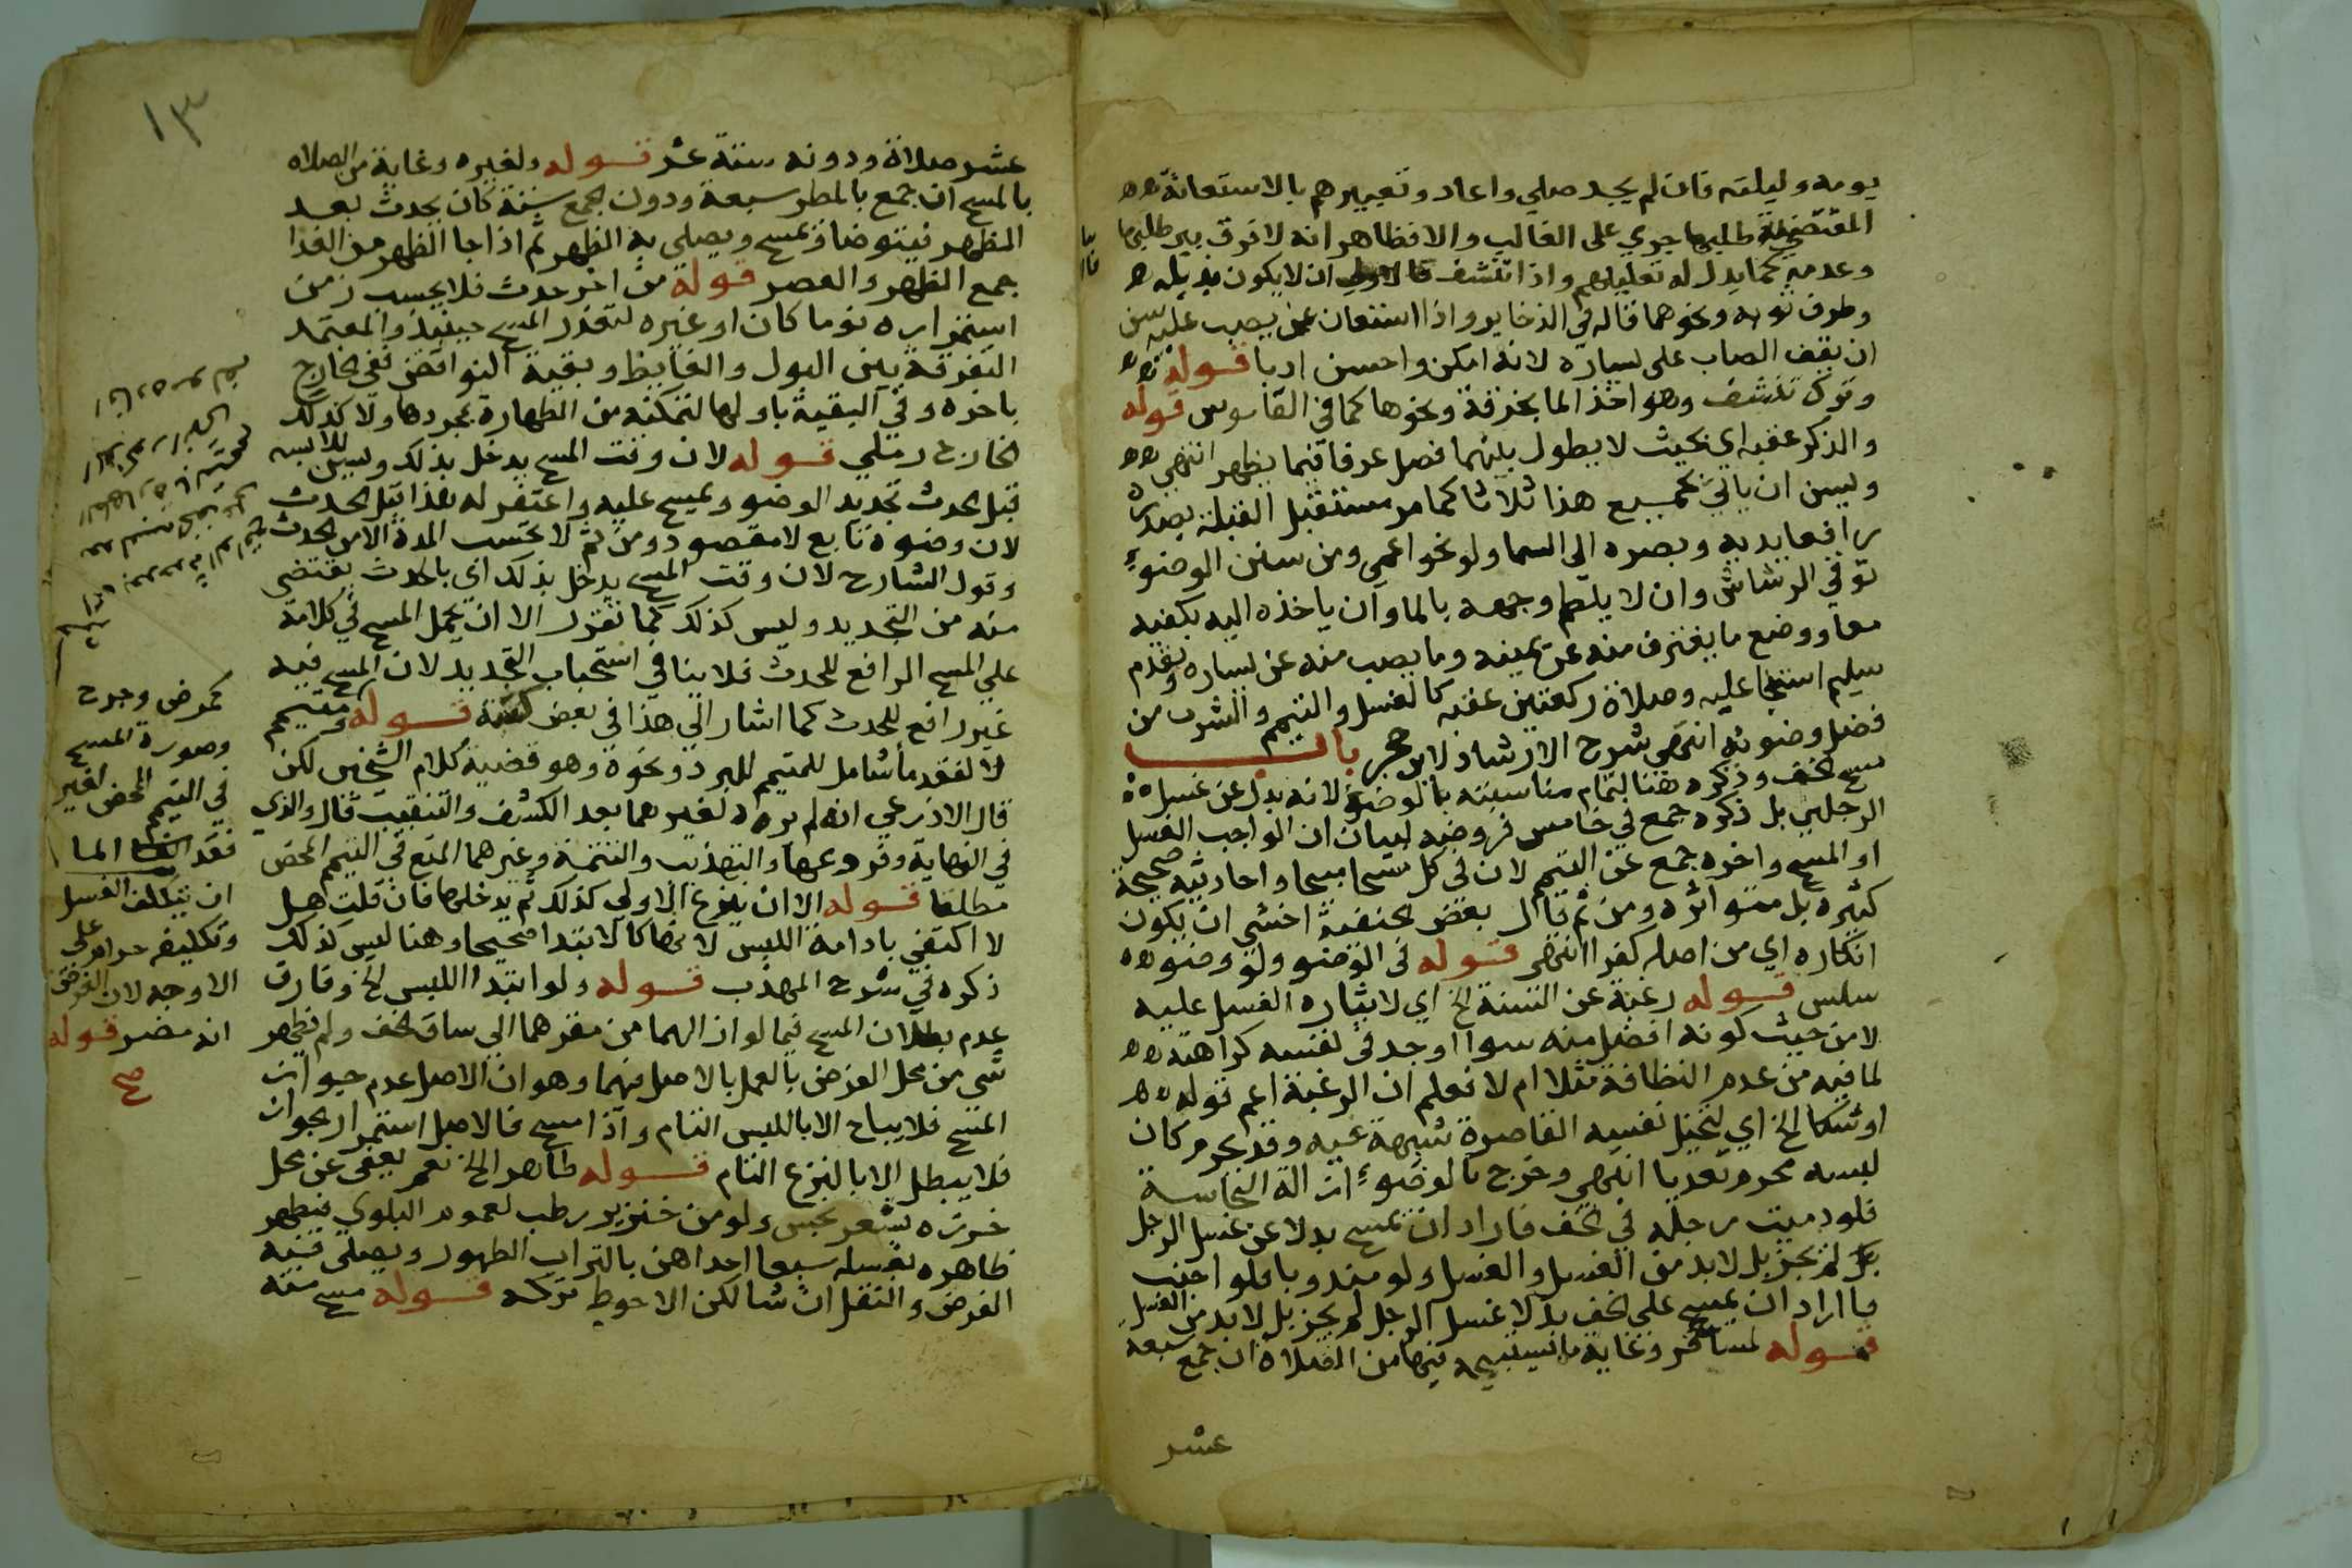 يومه وليلته فان لم يجد صلي واعاد وتعبيرهم بالاستعانة
المقتضية طلبها جري على الغالب والا فظاهر انه لا فرق بين طلبها
وعدمه كما يدل له تعليلهم واذا تنشف فالاولى ان لا يكون بذيله
وطرف ثوبه ونحوهما قاله في الذخاير واذا استعان بمن يصب عليه سن
ان يقف الصاب على يساره لانه امكن واحسن ادبا قوله
وترك تنشف وهو اخذ الما بخرقة ونحوها كما في القاموس قوله
والذكر عقبه اي بحيث لا يطول بينهما فصل عرفا فيما يظهر انتهي
ويسن ان ياتي بجميع هذا ثلاثا كما مر مستقبل القبلة بصدره
رافعا يديه وبصره الى السما ولو نحو اعمي ومن سنن الوضوء
توقي الرشاش وان لا يلطم وجهه بالما وان ياخذه اليه بكفيه
معا ووضع ما يغترف منه عن يمينه وما يصب منه عن يساره وتقدم
سليم استنجا عليه وصلاة ركعتين عقبه كالغسل والتيمم والشرب من
فضل وضوئه انتهي شرح الارشاد لابن حجر باب
مسح الخف وذكره هنا لتمام مناسبته بالوضوء لانه بدل عن غسل
الرجلين بل ذكره جمع في خامس فروضه لبيان ان الواجب الغسل
او المسح واخره جمع عن التيمم لان في كل مسحا مبيحا واحاديثه صحيحة
كثيره بل متواتره ومن ثم قال بعض الحنفية اخشي ان يكون
انكاره اي من اصله كفرا انتهي قوله في الوضو ولو وضو
سلس قوله رغبة عن السنة الخ اي لايثاره الغسل عليه
لا من حيث كونه افضل منه سوا اوجد في نفسه كراهته
لما فيه من عدم النظافة مثلا ام لا فعلم ان الرغبة اعم قوله
او شكا الخ اي لتخيل نفسه القاصرة شبهة فيه وقد يحرم كان
لبسه محرم تعديا انتهي وخرج بالوضوء ازالة النجاسة
فلو دميت رجله في الخف فاراد ان يمسح بدلا عن غسل الرجل
لم يجز بل لابد من الغسل والغسل ولو مندوبا فلو اجنب
فاراد ان يمسح على الخف بدلا غسل الرجل لم يجز بل لا بد من الغسل
قوله لمسافر وغاية ما يستبيحه فيها من الصلاة ان جمع سبعة
عشر
١٣
عشر صلاة ودونه ستة عشر قوله ولغيره وغاية من الصلاه
بالمسح ان جمع بالمطر سبعة ودون الجمع ستة كان يحدث بعد
الظهر فيتوضا ويمسح ويصلي به الظهر ثم اذا جا الظهر من الغد
جمع الظهر والعصر قوله من اخر حدث فلا يحسب زمن
استمراره نوما كان او غيره لتعذر المسح حينئذ والمعتمد
التفرقة بين البول والغايط وبقية النواقض ففي الخارج
باخره وفي البقية باولها لتمكنه من الطهارة بمجردها ولا كذلك
الخارج رملي قوله لان وقت المسح يدخل بذلك ويسن للابسه
قبل الحدث تجديد الوضو ويمسح عليه واعتفر له هذا قبل الحدث
لان وضوه تابع لا مقصود ومن ثم لا تحسب المدة الا من الحدث
وقول الشارح لان وقت المسح يدخل بذلك اي بالحدث يقتضي
منه من التجديد وليس كذلك كما تقرر الا ان يحمل المسح في كلامه
علي المسح الرافع للحدث فلا ينافي استحباب التجديد لان المسح فيه
غير رافع للحدث كما اشار الي هذا في بعض كتبه قوله ومتيمم
لا لفقد ما شامل للمتيمم للبرد ونحوه وهو قضية كلام الشيخين لكن
قال الاذرعي انه لم يره لغيرهما بعد الكشف والتنقيب قال والذي
في النهاية وفروعها والتهذيب والتتمة وغيرهما المنع في التيمم المحض
مطلقا قوله الا ان ينزع الاولي كذلك ثم يدخلها فان قلت هل
لا اكتفي بادامة اللبس لانها كالابتدا صحيحا وهنا ليس كذلك
ذكره في شرح المهذب قوله ولو ابتدا اللبس الخ وفارق
عدم بطلان المسح فيما لو ازالهما من مقرهما الي ساق الخف ولم يظهر
شي من محل الفرض بالعمل بالاصل فيهما وهو ان الاصل عدم جواز
المسح فلا يباح الا باللبس التام واذا مسح فالاصل استمرار الجواز
فلا يبطل الا بالنزع التام قوله طاهر الخ نعم يعفي عن محل
خرزه بشعر نجس ولو من خنزير رطب لعموم البلوي فيطهر
ظاهره بغسله سبعا احداهن بالتراب الطهور ويصلي فيه
الفرض والنفل ان شا لكن الاحوط تركه قوله مسح منه
كمرض وجرح
وصورة المسح
في التيمم المحض لغير
فقد الما
ان يتكلف الغسل
وتكليفه حرام على
الاوجه لان الفرض
انه مضر قوله
صح